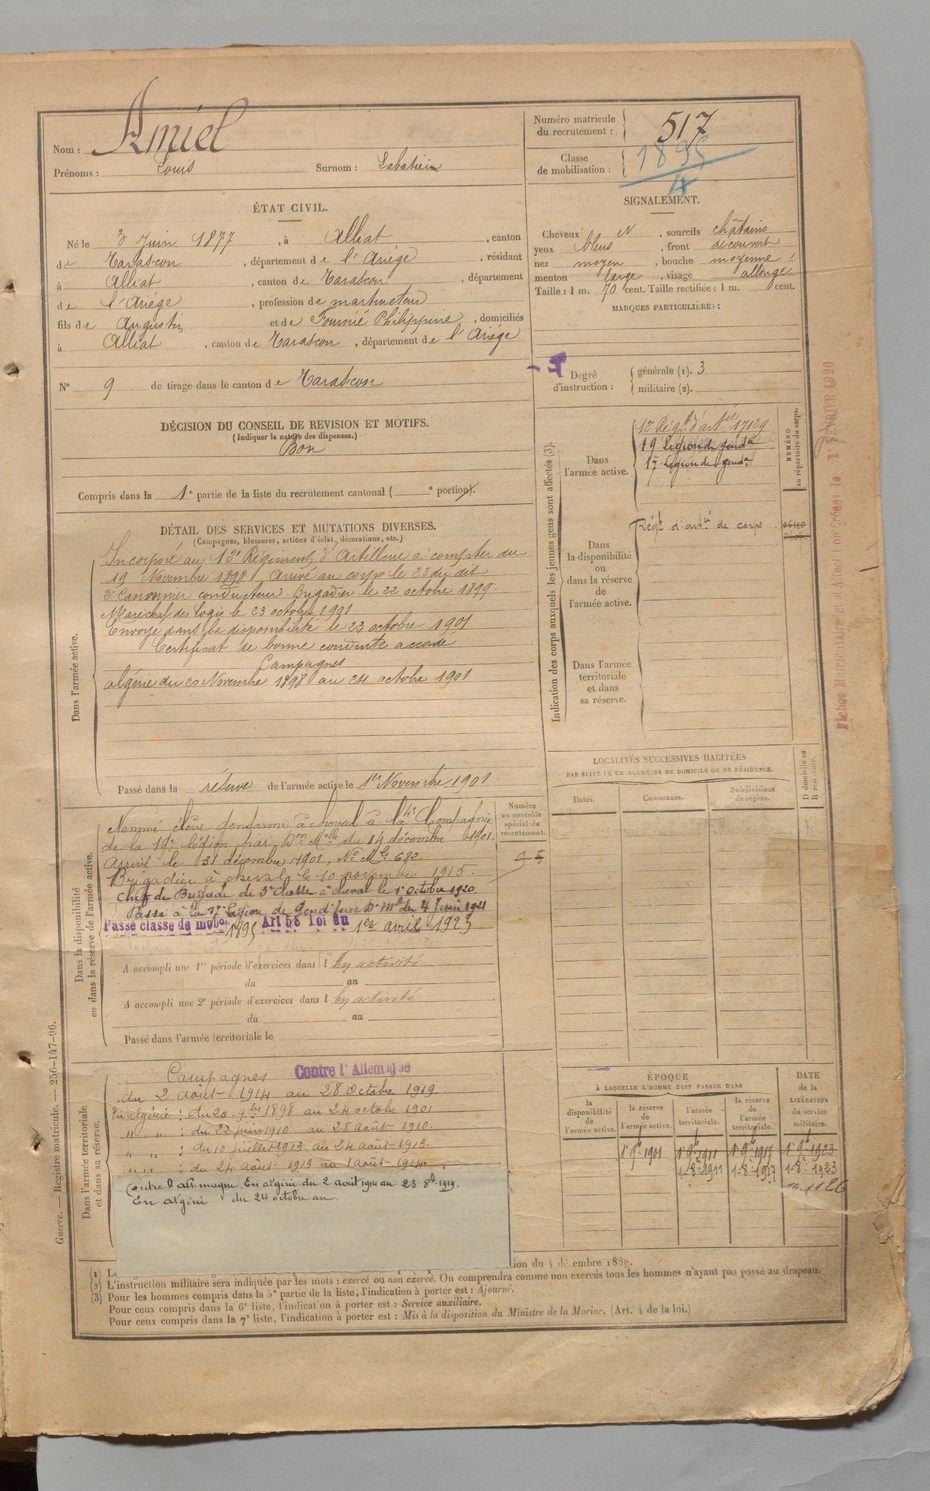 Nom : Amiel
Prénoms : Louis Surnom : Sabatier
Numéro matricule du recrutement : 517
Classe de mobilisation : 1895
ÉTAT CIVIL.
Né le 3 Juin 1877, à Alliat, canton
de Tarascon, département de l'Ariége, résidant
à Alliat, canton de Tarascon, département
de l'Ariége, profession de
fils de Augustin et de Fournié Philippine, domiciliés
à Alliat, canton de Tarascon, département de l'Ariége
N° 9 de tirage dans le canton de Tarascon
SIGNALEMENT.
Cheveux N, sourcils châtains
yeux bleus, front découvert
nez moyen, bouche moyenne
menton large, visage allongé
Taille : 1 m. 70 cent. Taille rectifiée : 1 m. cent.
MARQUES PARTICULIÈRES :
Degré d'instruction : générale (1). 3
militaire (2).
DÉCISION DU CONSEIL DE REVISION ET MOTIFS.
(Indiquer la nature des dispenses.)
Bon
Compris dans la 1e partie de la liste du recrutement cantonal ( e portion).
DÉTAIL DES SERVICES ET MUTATIONS DIVERSES.
(Campagnes, blessures, actions d'éclat, décorations, etc.)
Dans l'armée active.
Incorporé au 13e Régiment d'Artillerie à compter du
19 Novembre 1898, Arrivé au corps le 23 du dit
2e Canonnier conducteur. Brigadier le 22 octobre 1899.
Maréchal des Logis le 23 octobre 1901
Envoyé dans la disponibilité le 23 octobre 1901
Certificat de bonne conduite accordé
Campagnes
algérie du 20 Novembre 1898 au 24 octobre 1901
Passé dans la réserve de l'armée active le 1er Novembre 1901
Indication des corps auxquels les jeunes gens sont affectés (3).
NUMÉRO au répertoire du corps.
Dans l'armée active.
13e Régt d'artie 17129
19 Légion de gendie
17 Légion de gendie
Dans la disponibilité ou dans la réserve de l'armée active.
Régt d'artie de corps
Dans l'armée territoriale et dans sa réserve.
Dans la disponibilité ou dans la réserve de l'armée active.
Numéro au contrôle spécial du recrutement.
Nommé élève gendarme à cheval à la 4e Compagnie
de la 19e légion par Don Mlle du 19 décembre 1901.
Arrivé le 31 décembre 1901, No Mle 682.
Brigadier à cheval le 10 novembre 1915.
Chef de Brigade de 3e classe à cheval le 1er octobre 1920.
Passé à la 17e Légion de Gendie du 4 Juin 1921
Passé classe de mobon 1895 Art 58 Loi du 1er avril 1923
A accompli une 1re période d'exercices dans l En activité
du au
A accompli une 2e période d'exercices dans l En activité
du au
Passé dans l'armée territoriale le
LOCALITÉS SUCCESSIVES HABITÉES
PAR SUITE DE CHANGEMENTS DE DOMICILE OU DE RÉSIDENCE.
Dates. Communes. Subdivisions de région. D domicile ou R résidence.
Dans l'armée territoriale et dans sa réserve.
Campagnes Contre l'Allemagne
du 2 août 1914 au 28 octobre 1919.
En algérie : du 20 9bre 1898 au 24 octobre 1901
" " : du 22 juin 1910 au 28 août 1910.
" " : du 10 juillet 1913 au 24 août 1913.
" " : du 24 août 1913 au 1 août 1914.
Contre l'allemagne. En algérie du 2 août 1914 au 23 8b 1919.
En algérie du 24 octobre au
ÉPOQUE
À LAQUELLE L'HOMME DOIT PASSER DANS
la disponibilité de l'armée active. la réserve de l'armée active. l'armée territoriale. la réserve de l'armée territoriale.
DATE de la LIBÉRATION du service militaire.
1er 9b 1901 1er 9b 1911 1er 9b 1917 1er 9b 1923
1-8-1911 1-8-1917 1-8-1923
(1) L
ion du 4 décembre 1889.
(2) L'instruction militaire sera indiquée par les mots : exercé ou non exercé. On comprendra comme non exercés tous les hommes n'ayant pas passé au drapeau.
(3) Pour les hommes compris dans la 5e partie de la liste, l'indication à porter est : Ajourné.
Pour ceux compris dans la 6e liste, l'indication à porter est : Service auxiliaire.
Pour ceux compris dans la 7e liste, l'indication à porter est : Mis à la disposition du Ministre de la Marine. (Art. 4 de la loi.)
Guerre. — Registre matricule. — 256-147-96.